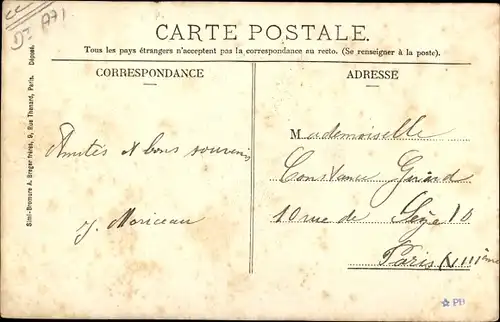 CARTE POSTALE.
Tous les pays étrangers n'acceptent pas la correspondance au recto. (Se renseigner à la poste).
CORRESPONDANCE
ADRESSE
Amitiés et bons souvenirs
J. Moriceau
Mademoiselle
Constance
10 rue de Sèze 10
Paris
Simi-Bromure A. Breger frères, 9, Rue Thénard, Paris. Déposé.
PB